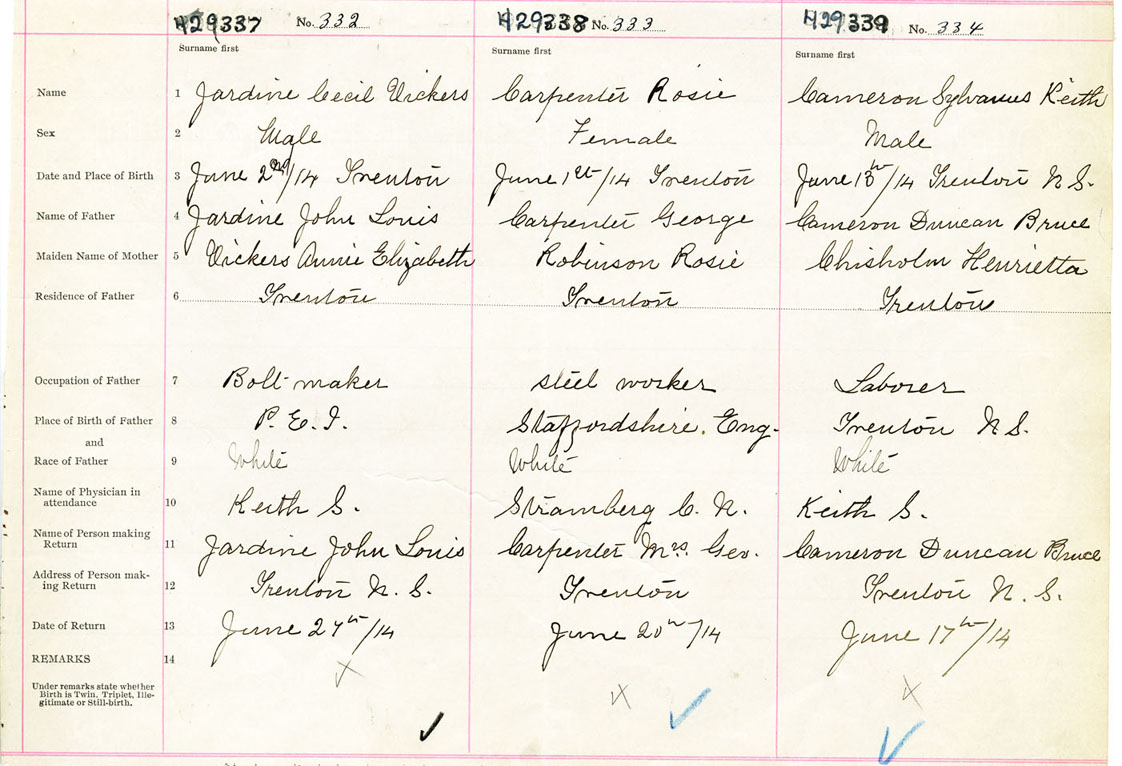 429337 No. 332 429338 No. 333 429339 No. 334
Surname first Surname first Surname first
Name 1 Jardine Cecil Vickers Carpenter Rosie Cameron Sylvanus Keith
Sex 2 Male Female Male
Date and Place of Birth 3 June 2nd/14 Trenton June 1st/14 Trenton June 13th/14 Trenton N.S.
Name of Father 4 Jardine John Louis Carpenter George Cameron Duncan Bruce
Maiden Name of Mother 5 Vickers Annie Elizabeth Robinson Rosie Chisholm Henrietta
Residence of Father 6 Trenton Trenton Trenton
Occupation of Father 7 Bolt maker steel worker Laborer
Place of Birth of Father 8 P. E. I. Staffordshire. Eng. Trenton N.S.
and
Race of Father 9 White White White
Name of Physician in
attendance 10 Keith S. Stramberg C. N. Keith S.
Name of Person making
Return 11 Jardine John Louis Carpenter Mrs. Geo. Cameron Duncan Bruce
Address of Person mak-
ing Return 12 Trenton N. S. Trenton Trenton N. S.
Date of Return 13 June 27th/14 June 20th/14 June 17th/14
REMARKS 14 X
Under remarks state whether
Birth is Twin, Triplet, Ille-
gitimate or Still-birth. X X